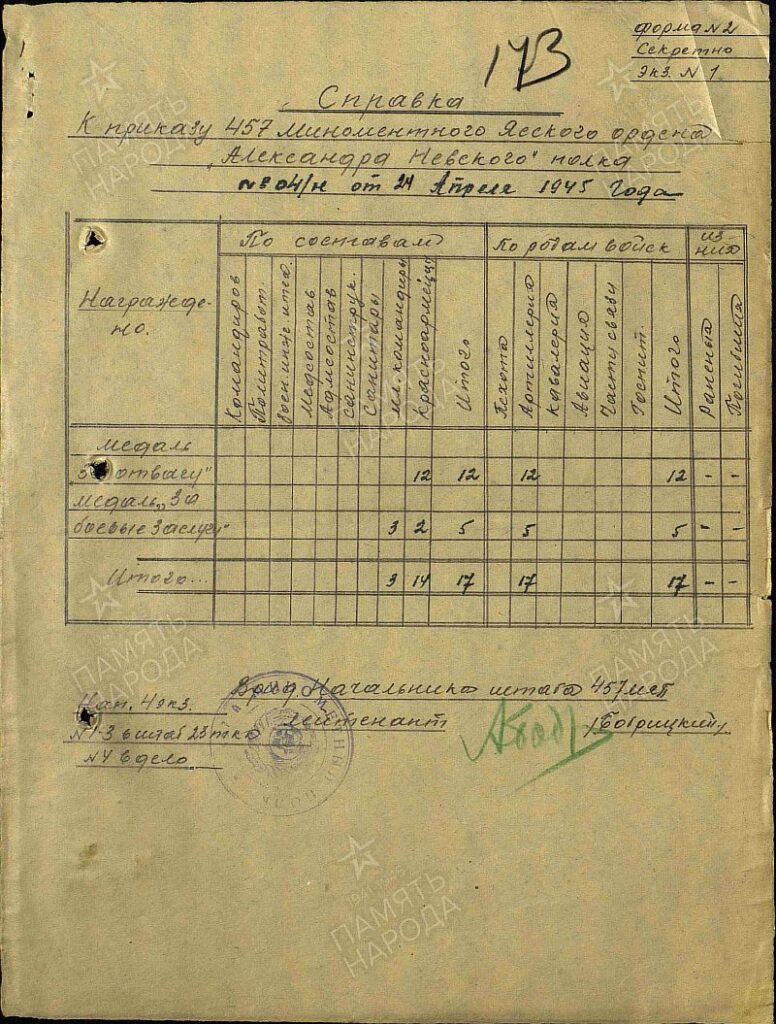 173
Форма N 2
Секретно
Экз. N 1.
Справка
К приказу 457 Миноментного Ясского ордена
"Александра Невского" полка
N 04/н от 24 Апреля 1945 Года
Награжде-
но.
По составам
По родам войск
Из
них
Командиров
Политработ.
Воен. инж. итео.
Медсостав
Адмсостав
Санинструк.
Санитары
Мл. командиры
Красноармейцы
Итого
Пехота
Артиллерия
Кавалерия
Авиация
Части связи
Госпит.
Итого
Раненых
Погибших
медаль
"За отвагу" 12 12 12 12 - -
медаль "За
боевые заслуги" 3 2 5 5 5 - -
Итого... 3 14 17 17 17 - -
Врид. Начальника штаба 457 мп
Лейтенант /Бобрицкий/
Нап. 4 экз.
N 1-3 в штаб 23 тк
N 4 в дело.
ПАМЯТЬ
НАРОДА
1941-1945
ПАМЯТЬ
НАРОДА